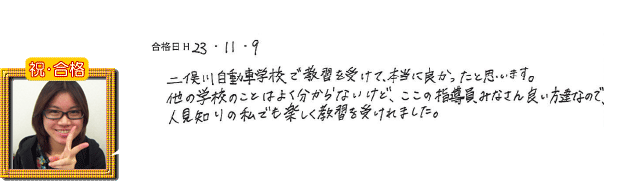 合格日 H 23・11・9
祝・合格
二俣川自動車学校で教習を受けて、本当に良かったと思います。
他の学校のことはよく分からないけど、ここの指導員みなさん良い方達なので、
人見知りの私でも楽しく教習を受けれました。